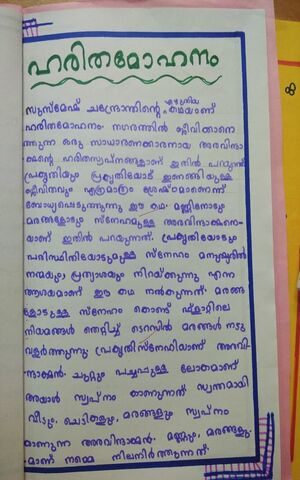 ഹരിതമോഹനം
സുസ്മേഷ് ചന്ദ്രോത്തിന്റെ എഴുതിയ കഥയാണ്
ഹരിതമോഹനം. നഗരത്തിൽ ജീവിക്കാനെ
ത്തുന്ന ഒരു സാധാരണക്കാരനായ അരവിന്ദാ
ക്ഷന്റെ ഹരിതസ്വപ്നങ്ങളാണ് ഇതിൽ പറയുന്നത്
പ്രകൃതിയും പ്രകൃതിയോട് ഇണങ്ങിയുള്ള
ജീവിതവും എത്രമാത്രം ശ്രേഷ്ഠമാണെന്ന്
ബോധ്യപ്പെടുത്തുന്നു ഈ കഥ. മണ്ണിനോടും
മരങ്ങളോടും സ്നേഹമുള്ള അരവിന്ദാക്ഷനെ-
യാണ് ഇതിൽ പറയുന്നത്. പ്രകൃതിയോടും
പരിസ്ഥിതിയോടുമുള്ള സ്നേഹം മനുഷ്യരിൽ
നന്മയും, പ്രത്യാശയും നിറയ്ക്കുന്നു എന്ന
ആശയമാണ് ഈ കഥ നൽകുന്നത്. മരങ്ങ
ളോടുള്ള സ്നേഹം കൊണ്ട് ഫ്ലാറ്റിലെ
നിയമങ്ങൾ തെറ്റിച്ച് ടെറസിൽ മരങ്ങൾ നട്ടു
വളർത്തുന്നു പ്രകൃതിസ്നേഹിയാണ് അരവി-
ന്ദാക്ഷൻ. ചുറ്റും പച്ചപ്പുള്ള ലോകമാണ്
അയാൾ സ്വപ്നം കാണുന്നത് സ്വന്തമായി
വീടും, ചെടികളും, മരങ്ങളും സ്വപ്നം
കാണുന്ന അരവിന്ദാക്ഷൻ. മണ്ണും, മരങ്ങളു-
മാണ് നമ്മെ നിലനിർത്തുന്നത്.